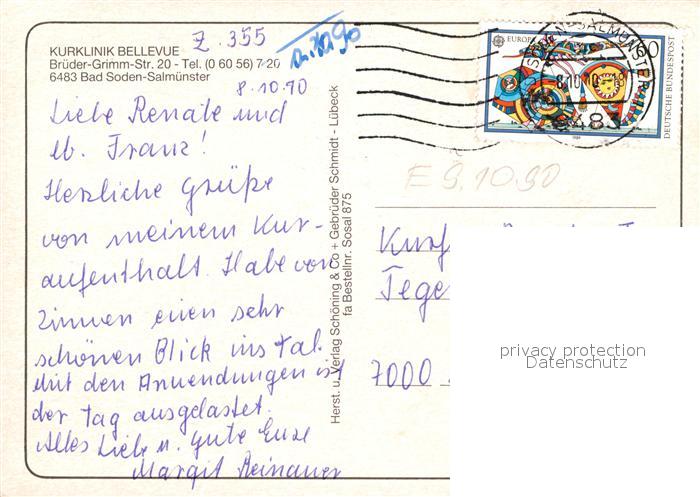 KURKLINIK BELLEVUE
Brüder-Grimm-Str. 20 - Tel. (0 60 56) 7 20
6483 Bad Soden-Salmünster
Z. 355
8.10.90
Liebe Renate und
lb. Franz!
Herzliche Grüße
von meinem Kur-
aufenthalt. Habe vom
Zimmer einen sehr
schönen Blick ins Tal.
Mit den Anwendungen ist
der Tag ausgelastet.
Alles Liebe u. gute Eure
Margit Reinauer
Herst. u. Verlag Schöning & Co + Gebrüder Schmidt - Lübeck
fa Bestellnr. Sosal 875
EUROPA
DEUTSCHE BUNDESPOST
E 9.10.90
Tege
7000
privacy protection
Datenschutz